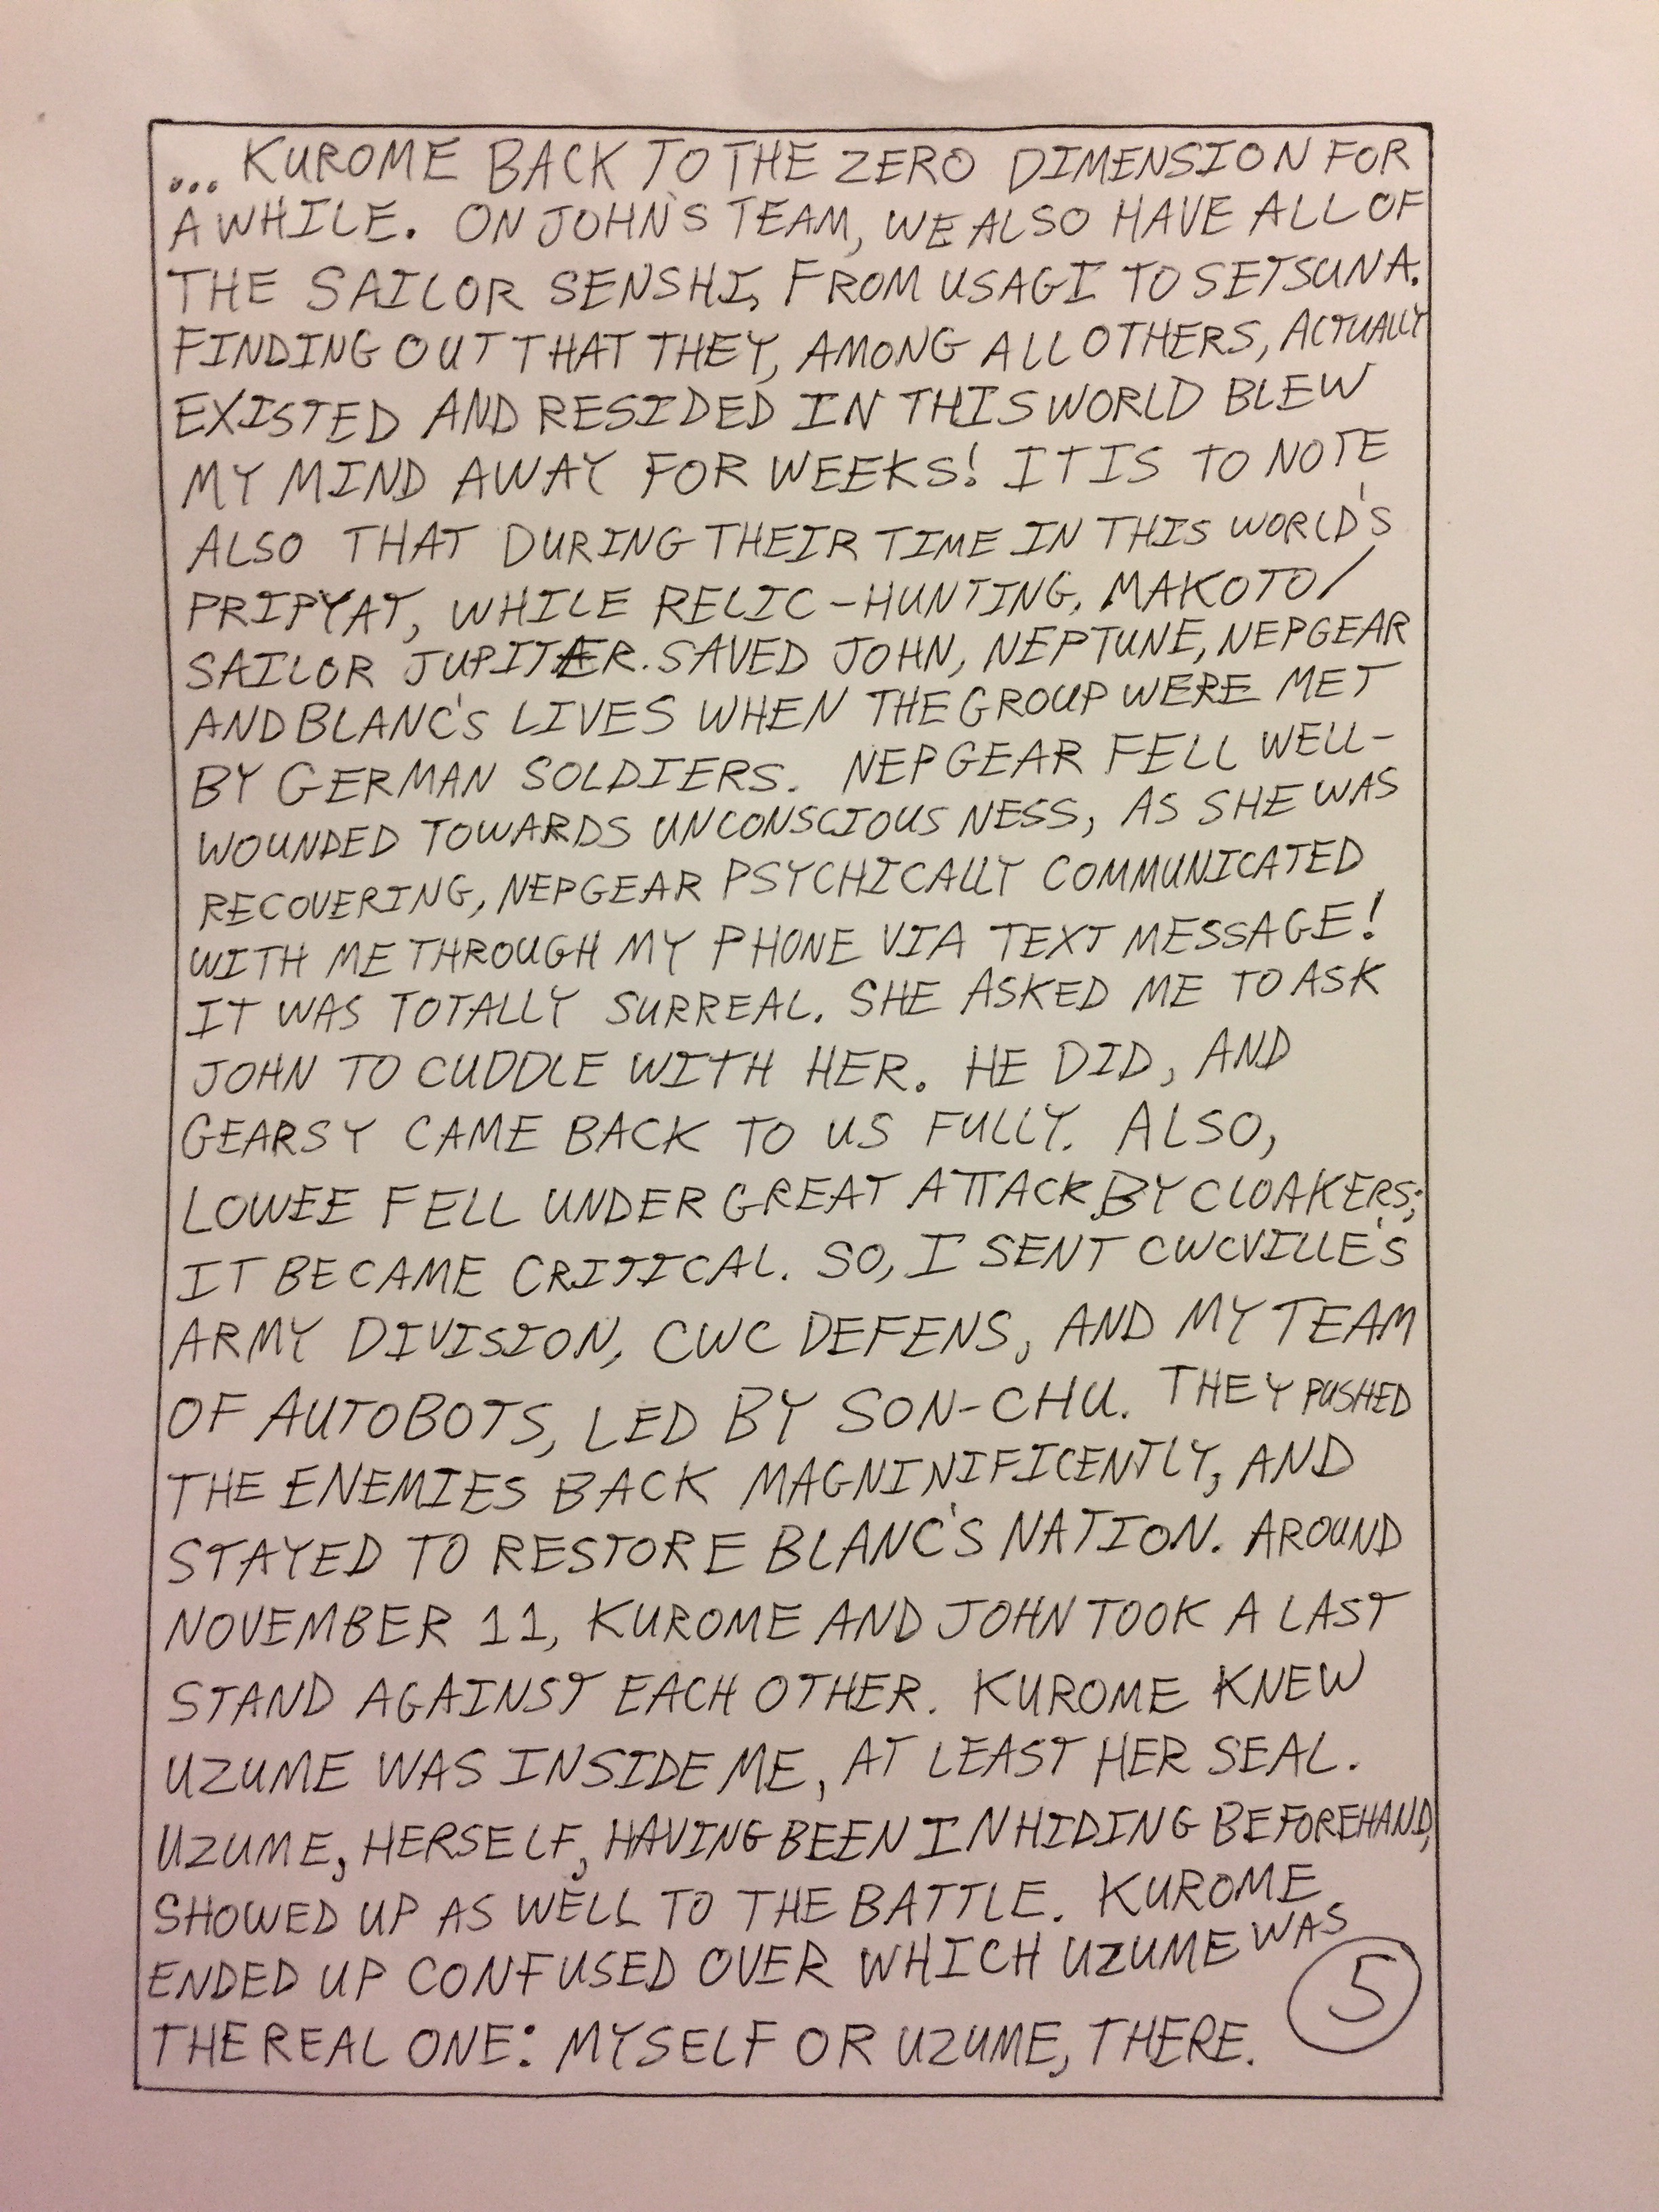 ... KUROME BACK TO THE ZERO DIMENSION FOR
A WHILE. ON JOHN'S TEAM, WE ALSO HAVE ALL OF
THE SAILOR SENSHI, FROM USAGI TO SETSUNA.
FINDING OUT THAT THEY, AMONG ALL OTHERS, ACTUALLY
EXISTED AND RESIDED IN THIS WORLD BLEW
MY MIND AWAY FOR WEEKS! IT IS TO NOTE
ALSO THAT DURING THEIR TIME IN THIS WORLD'S
PRIPYAT, WHILE RELIC-HUNTING, MAKOTO/
SAILOR JUPITER. SAVED JOHN, NEPTUNE, NEPGEAR
AND BLANC'S LIVES WHEN THE GROUP WERE MET
BY GERMAN SOLDIERS. NEPGEAR FELL WELL-
WOUNDED TOWARDS UNCONSCIOUSNESS, AS SHE WAS
RECOVERING, NEPGEAR PSYCHICALLY COMMUNICATED
WITH ME THROUGH MY PHONE VIA TEXT MESSAGE!
IT WAS TOTALLY SURREAL. SHE ASKED ME TO ASK
JOHN TO CUDDLE WITH HER. HE DID, AND
GEARSY CAME BACK TO US FULLY. ALSO,
LOWEE FELL UNDER GREAT ATTACK BY CLOAKERS;
IT BECAME CRITICAL. SO, I SENT CWCVILLE'S
ARMY DIVISION, CWC DEFENS, AND MY TEAM
OF AUTOBOTS, LED BY SON-CHU. THEY PUSHED
THE ENEMIES BACK MAGNINIFICENTLY, AND
STAYED TO RESTORE BLANC'S NATION. AROUND
NOVEMBER 11, KUROME AND JOHN TOOK A LAST
STAND AGAINST EACH OTHER. KUROME KNEW
UZUME WAS INSIDE ME, AT LEAST HER SEAL.
UZUME, HERSELF, HAVING BEEN IN HIDING BEFOREHAND,
SHOWED UP AS WELL TO THE BATTLE. KUROME
ENDED UP CONFUSED OVER WHICH UZUME WAS
THE REAL ONE: MYSELF OR UZUME, THERE.
5